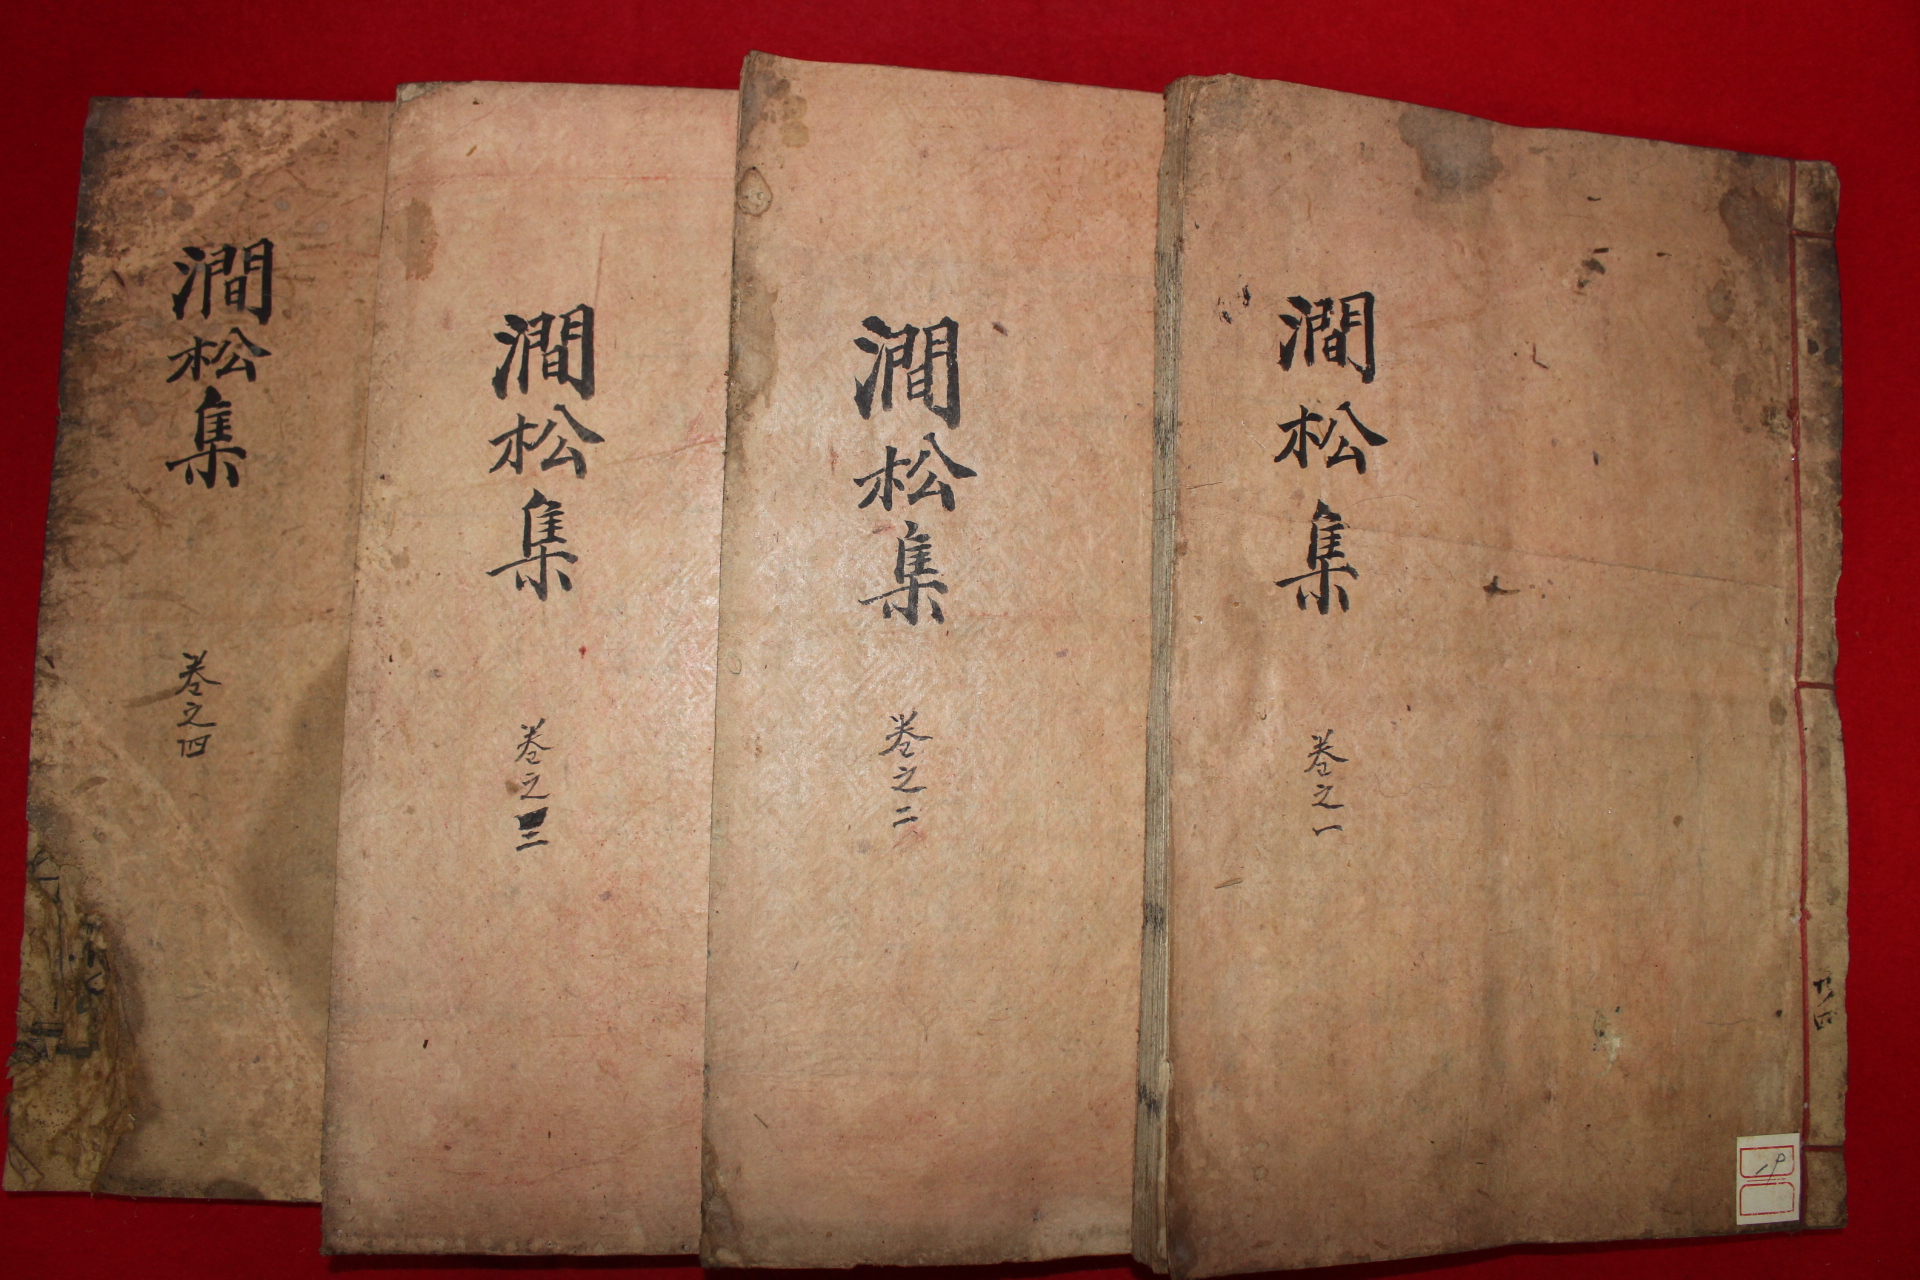 澗松集
卷之一
澗松集
卷之二
澗松集
卷之三
澗松集
卷之四
共四
19